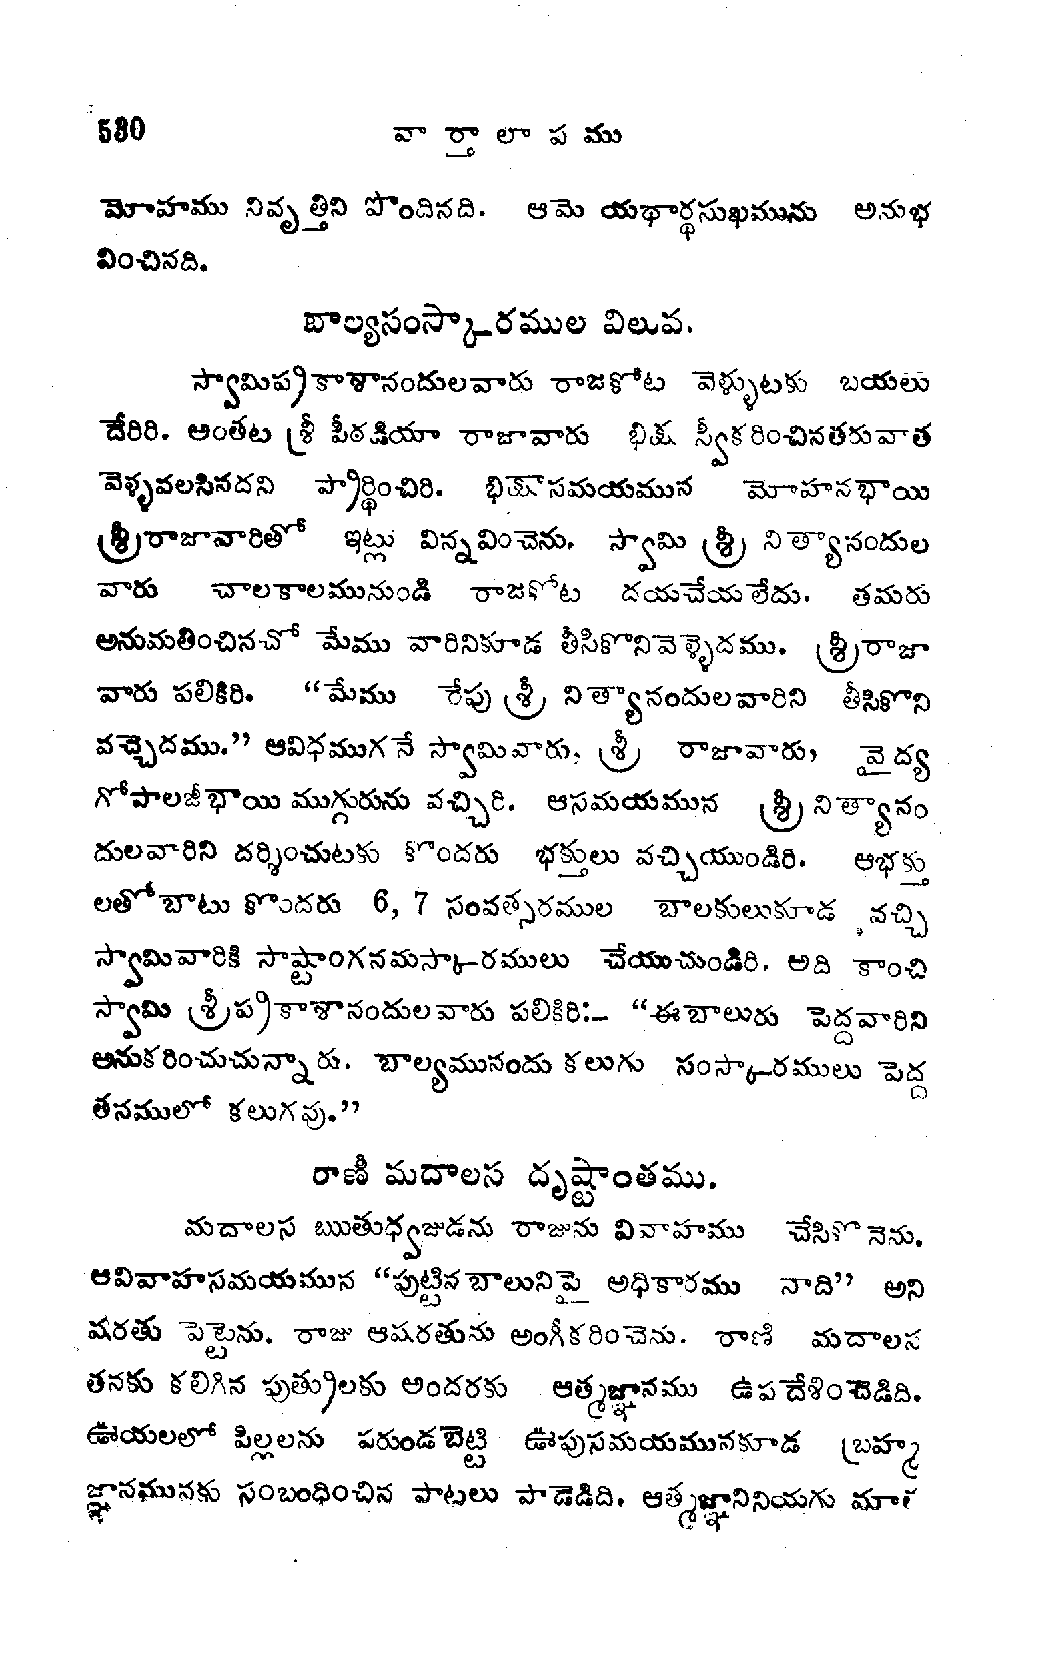 580 వా ర్తా లా ప ము
మోహము నివృత్తిని పొందినది. ఆమె యథార్థసుఖమును అనుభ
వించినది.
బాల్యసంస్కారముల విలువ.
స్వామిప్రకాశానందులవారు రాజకోట వెళ్ళుటకు బయలు
దేరిరి. అంతట శ్రీ పీఠడియా రాజావారు భిక్ష స్వీకరించినతరువాత
వెళ్ళవలసినదని ప్రార్థించిరి. భిక్షాసమయమున మోహనభాయి
శ్రీరాజావారితో ఇట్లు విన్నవించెను. స్వామి శ్రీ నిత్యానందుల
వారు చాలకాలమునుండి రాజకోట దయచేయలేదు. తమరు
అనుమతించినచో మేము వారినికూడ తీసికొనివెళ్ళెదము. శ్రీరాజా
వారు పలికిరి. “మేము రేపు శ్రీ నిత్యానందులవారిని తీసికొని
వచ్చెదము.” ఆవిధముగనే స్వామివారు, శ్రీ రాజావారు, వైద్య
గోపాలజీభాయి ముగ్గురును వచ్చిరి. ఆసమయమున శ్రీ నిత్యానం
దులవారిని దర్శించుటకు కొందరు భక్తులు వచ్చియుండిరి. ఆభక్తు
లతోబాటు కొందరు 6, 7 సంవత్సరముల బాలకులుకూడ వచ్చి
స్వామివారికి సాష్టాంగనమస్కారములు చేయుచుండిరి. అది కాంచి
స్వామి శ్రీప్రకాశానందులవారు పలికిరి:— “ఈబాలురు పెద్దవారిని
అనుకరించుచున్నారు. బాల్యమునందు కలుగు సంస్కారములు పెద్ద
తనములో కలుగవు.”
రాణీ మదాలస దృష్టాంతము.
మదాలస ఋతుధ్వజుడను రాజును వివాహము చేసికొనెను.
ఆవివాహసమయమున “పుట్టినబాలునిపై అధికారము నాది” అని
షరతు పెట్టెను. రాజు ఆషరతును అంగీకరించెను. రాణి మదాలస
తనకు కలిగిన పుత్రులకు అందరకు ఆత్మజ్ఞానము ఉపదేశించెడిది.
ఊయలలో పిల్లలను పరుండబెట్టి ఊపుసమయమునకూడ బ్రహ్మ
జ్ఞానమునకు సంబంధించిన పాటలు పాడెడిది. ఆత్మజ్ఞానినియగు మాఁ